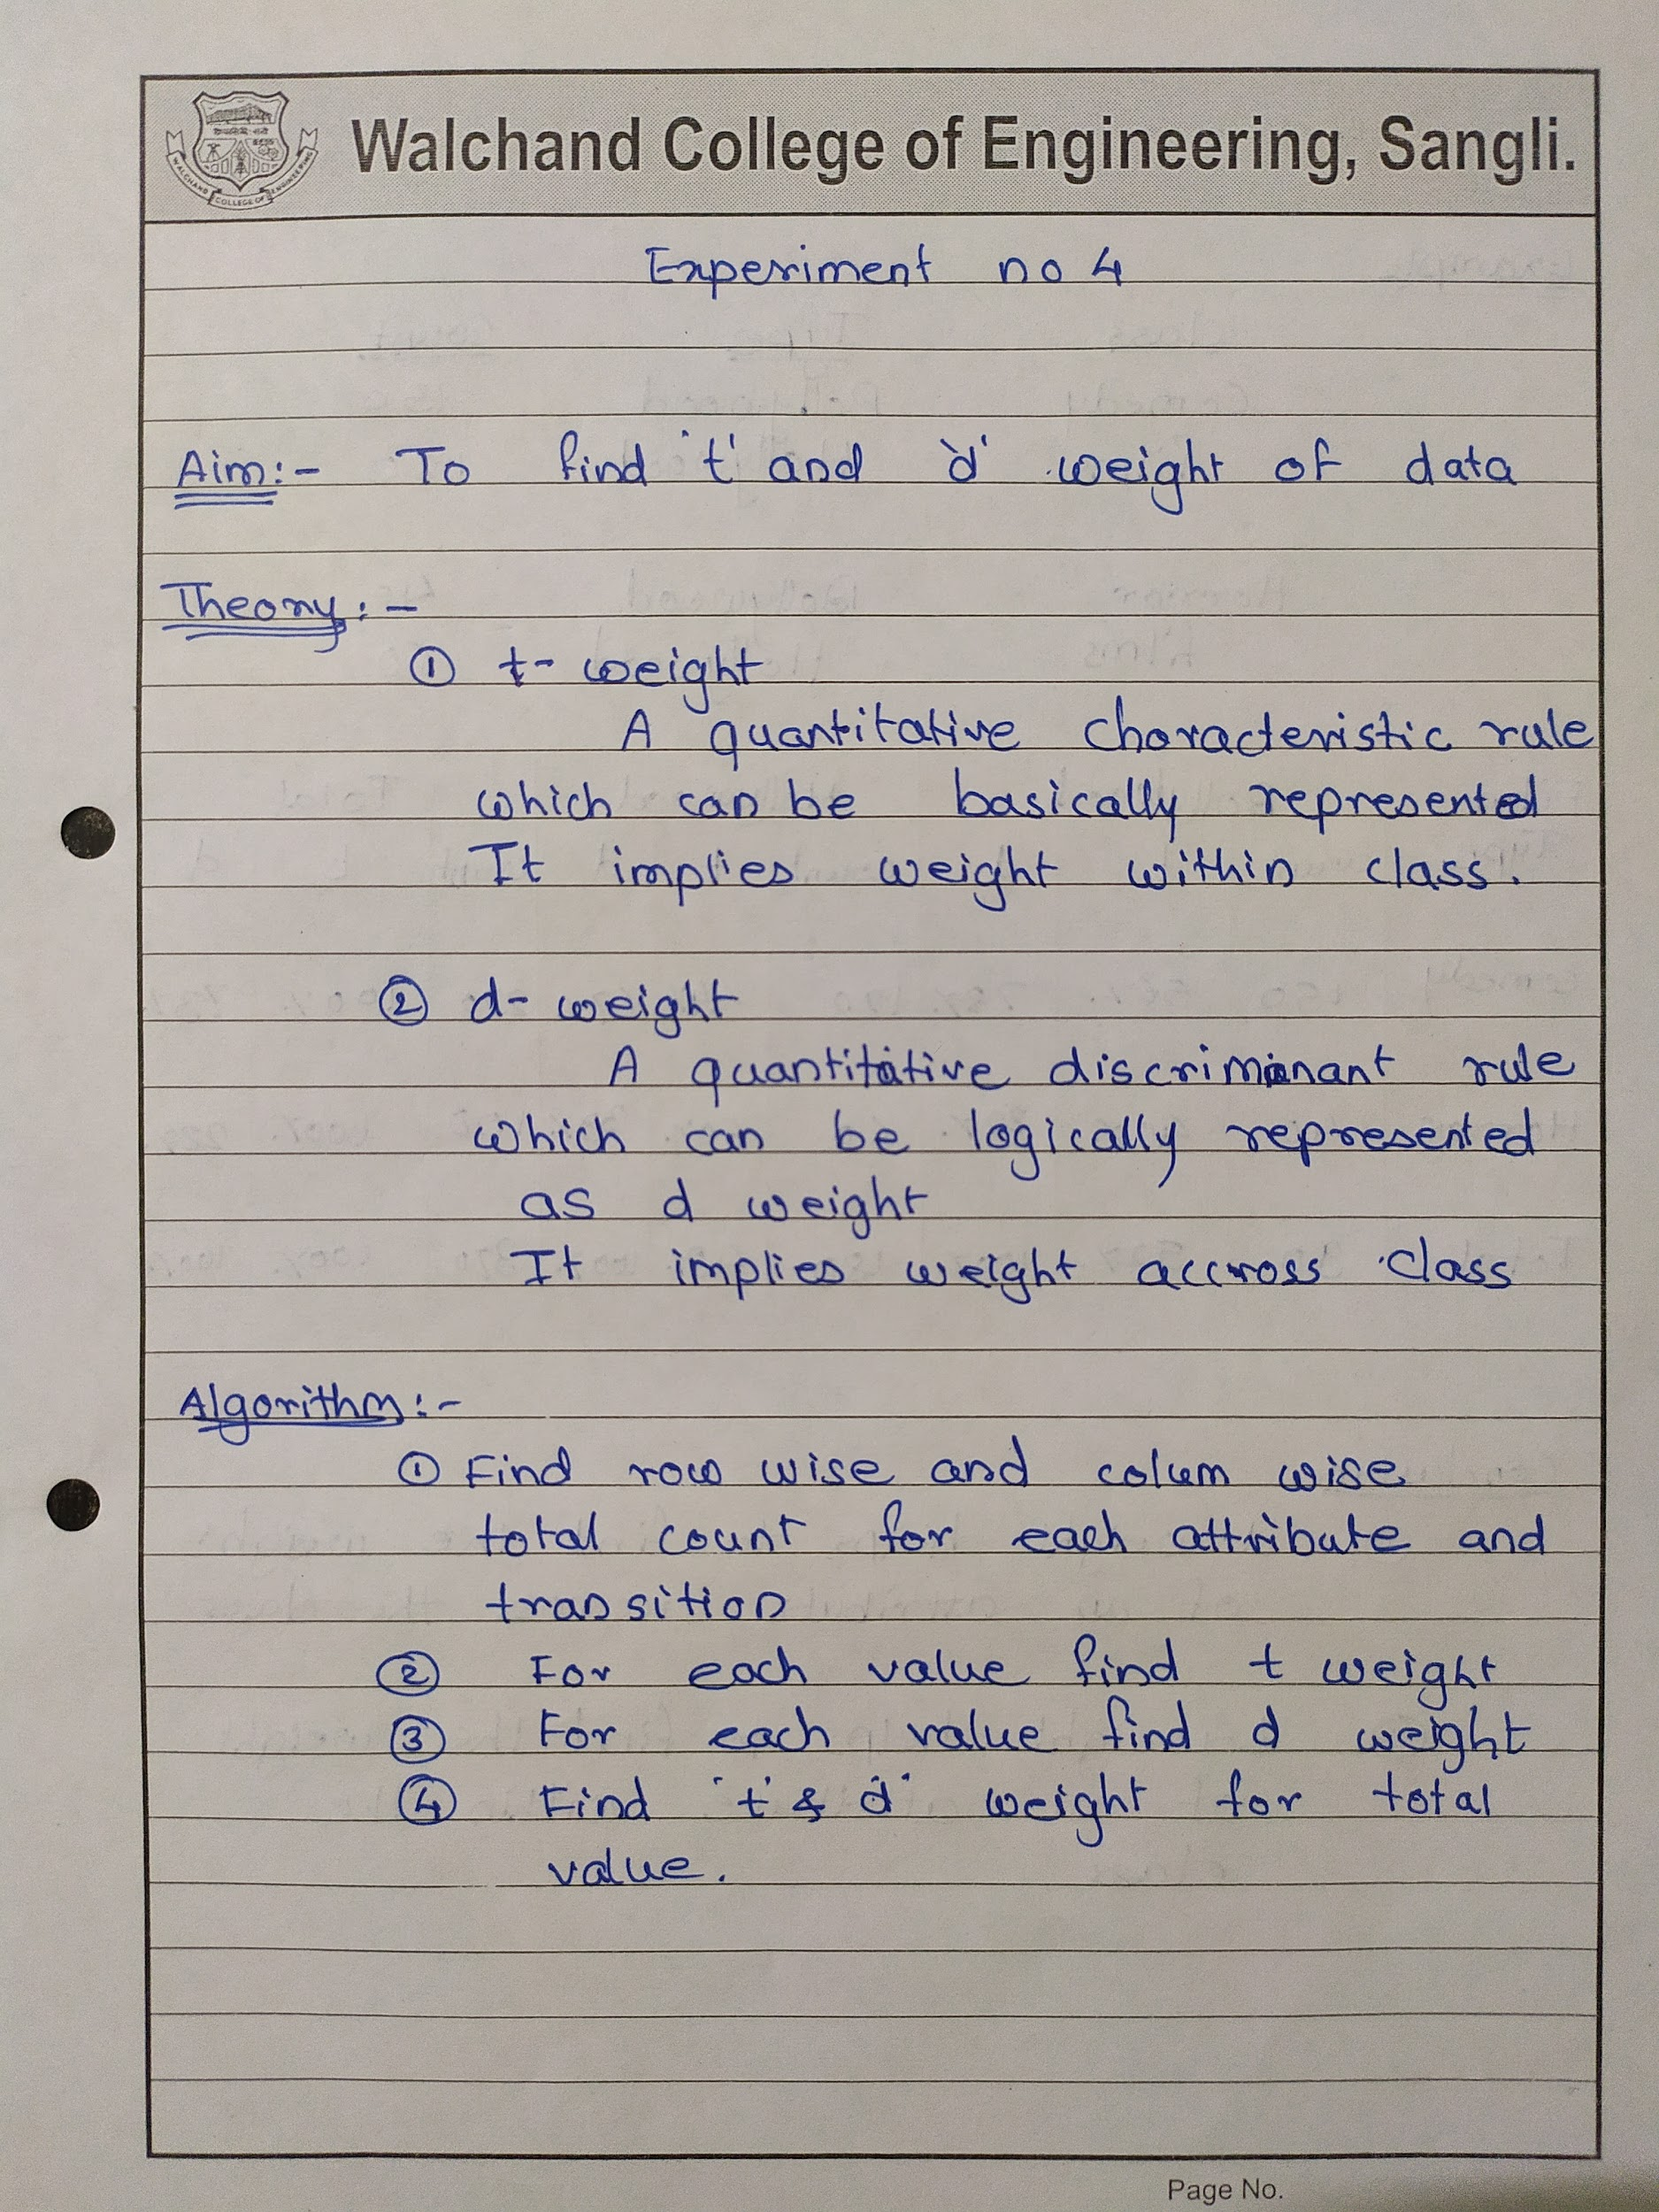 Walchand College of Engineering, Sangli.
WALCHAND COLLEGE OF ENGINEERING
Experiment no 4
Aim:- To find 't' and 'd' weight of data
Theory:-
① t- weight
A quantitative characteristic rule
which can be basically represented
It implies weight within class.
② d- weight
A quantitative discriminant rule
which can be logically represented
as d weight
It implies weight accross class
Algorithm:-
① Find row wise and colum wise
total count for each attribute and
transition
② For each value find t weight
③ For each value find d weight
④ Find 't' & 'd' weight for total
value.
Page No.